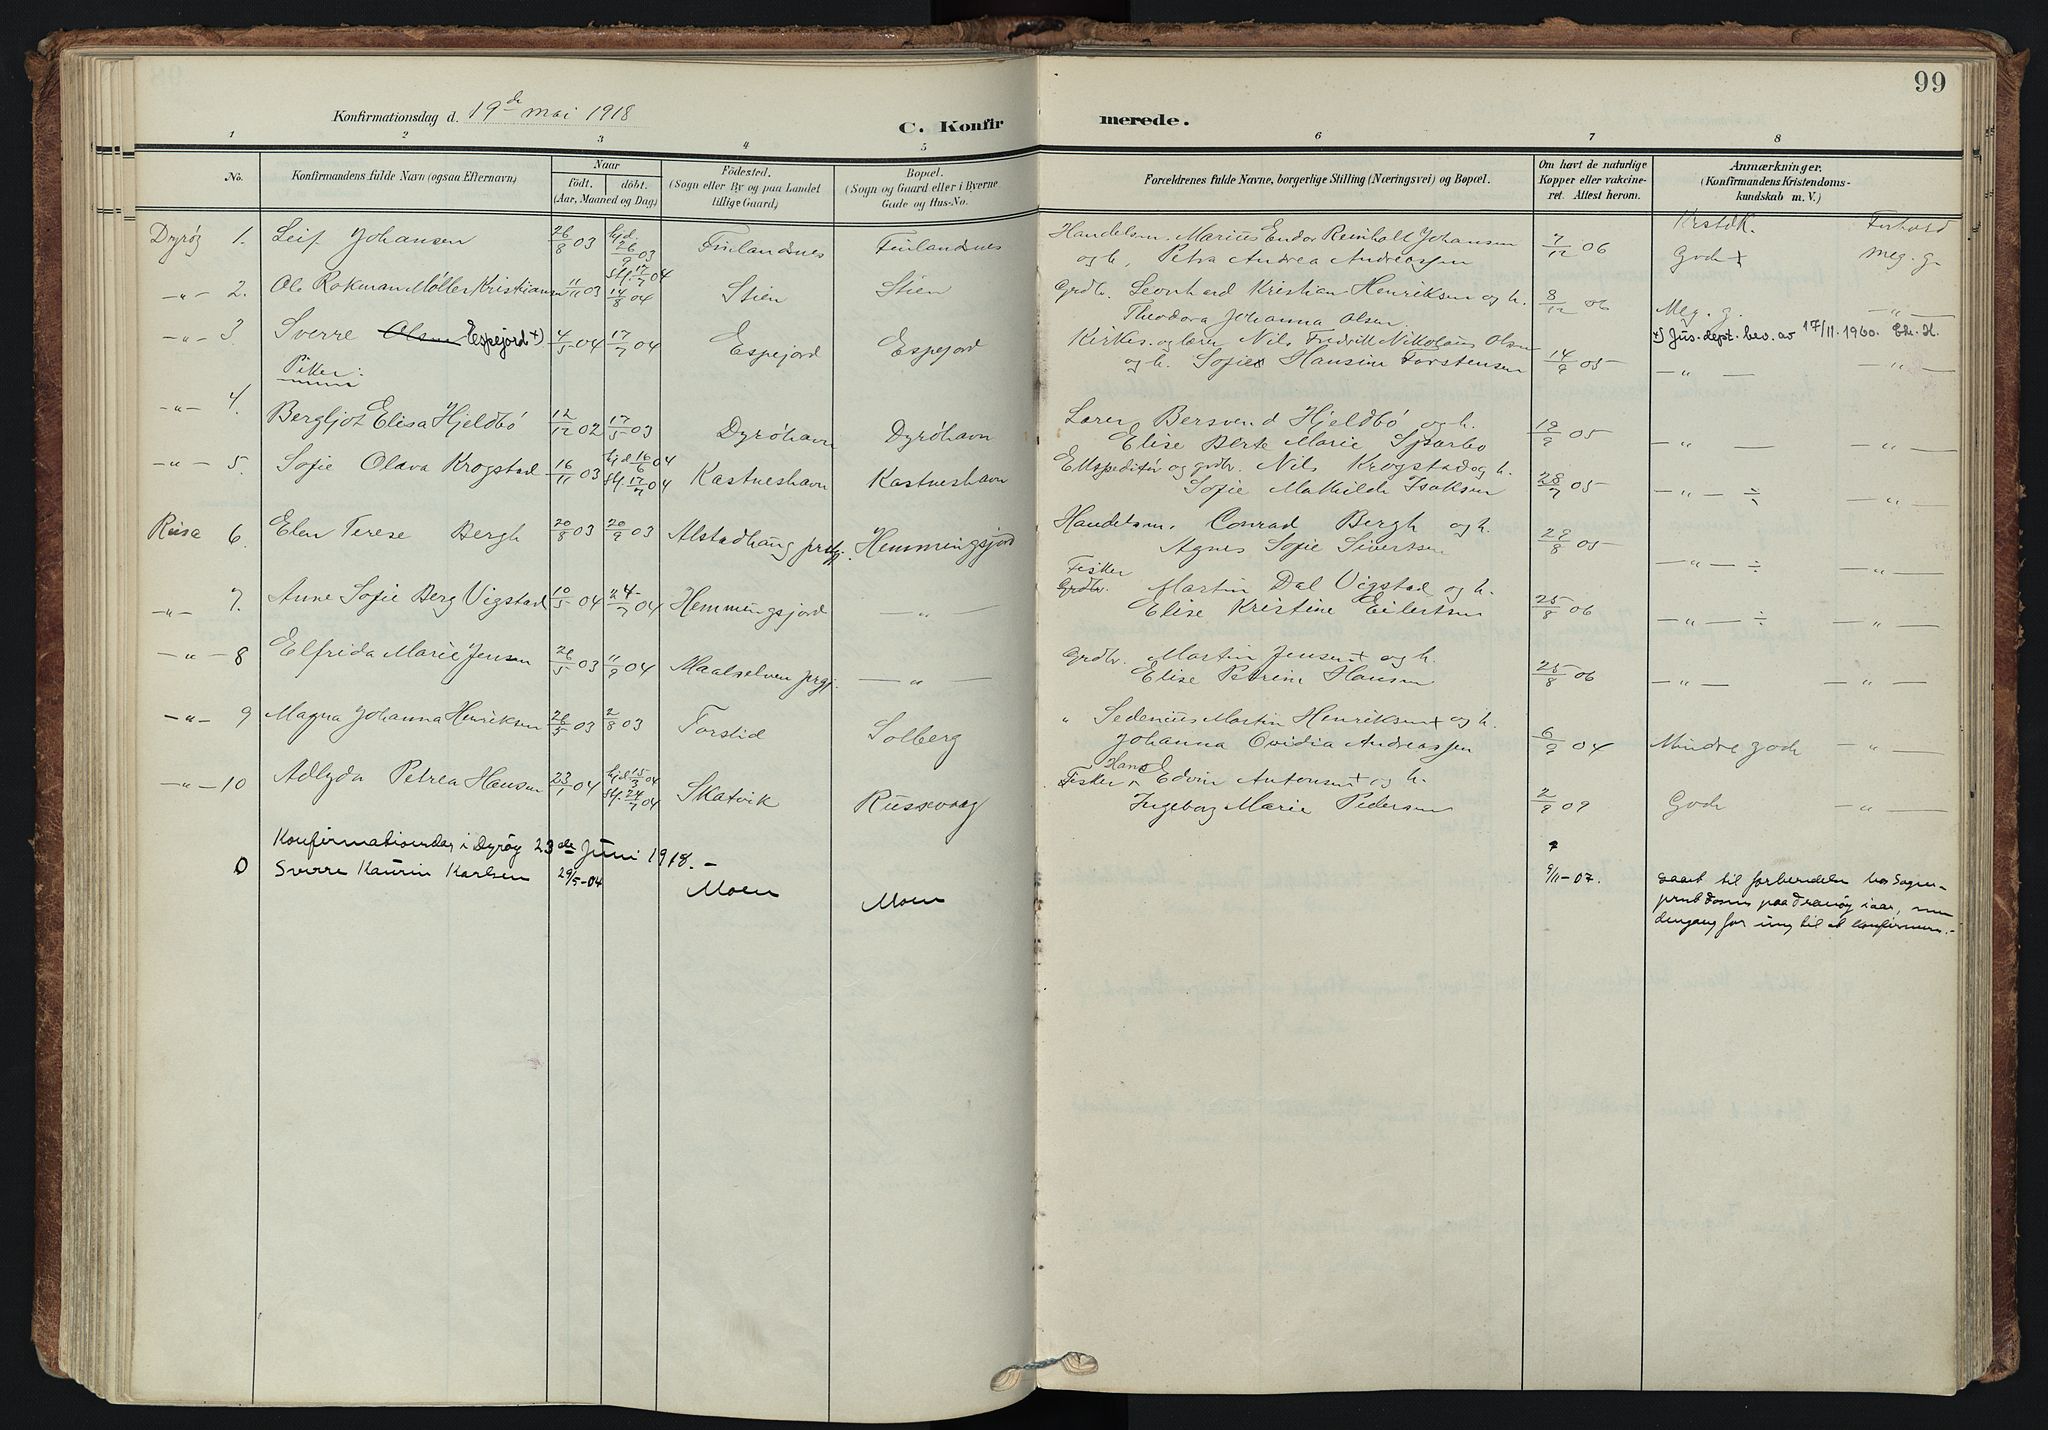 99
Konfirmationsdag d. 19de mai 1918
C. Konfir merede.
1 2 3 4 5 6 7 8
No.
Konfirmandens fulde Navn (ogsaa Efternavn)
Naar
födt. döbt.
(Aar, Maaned og Dag)
Födested.
(Sogn eller By og paa Landet
tillige Gaard)
Bopæl.
(Sogn og Gaard eller i Byerne
Gade og Hus-No.
Forældrenes fulde Navne, borgerlige Stilling (Næringsvei) og Bopæl.
Om havt de naturlige
Kopper eller vakcine-
ret. Attest herom.
Anmærkninger.
(Konfirmandens Kristendoms-
kundskab m. V.)
Kristdk. Forhold
Dyrøy 1. Leif Johansen 26/8 03 hjd. 26/9 03 Finlandnes Finlandnes Handelsm. Marius Endor Reinholt Johansen
og h. Petra Andrea Andreassen 7/12 06 Godt meg. g.
-"- 2. Ole Rokman Møller Kristiansen 11/11 03 st. 17/7 04 14/8 04 Stien Stien Grdbr. Leonhard Kristian Henriksen og h.
Theodora Johanna Olsen 8/12 06 Meg. g. -"-
-"- 3. Sverre Olsen Espejord +) 4/5 04 17/7 04 Espejord Espejord Kirkes. og lærer Nils Fredrik Nikolaus Olsen
og h. Sofie Hansine Torstensen 14/9 05 -"- -"-
+) Jus.dept. bev. av 17/11.1960. Chr. H.
Piker:
-"- 4. Bergljot Elisa Hjeldbö 12/12 02 17/5 03 Dyröhavn Dyröhavn Lærer Bersvend Hjeldbö og h.
Elise Berte Marie 19/9 05 -"- -"-
-"- 5. Sofie Olava Krogstad 16/11 03 hjd. 16/6 04 st. 17/7 04 Kastneshavn Kastneshavn Ekspeditör og grdbr. Nils Krogstad og h.
Sofie Mathilde Isaksen 28/7 05 -"- ÷ -"-
Reisa 6. Elen Terese Bergh 20/8 03 20/9 03 Alstadhaug prstgj. Hemmingsjord Handelsm. Conrad Bergh og h.
Agnes Sofie Sivertsen 29/8 05 -"- ÷ -"-
-"- 7. Anne Sofie Berg Vigstad 10/5 04 24/7 04 Hemmingsjord -"- Fisker
Grdbr. Martin Dal Vigstad og h.
Elise Kristine Eilertsen 25/8 06 -"- ÷ -"-
-"- 8 Elfrida Marie Jensen 26/5 03 11/9 04 Maalselven prgj. -"- Grdbr. Martin Jensen + og h.
Elise Petrine Hansen 25/8 06 -"- -"-
-"- 9 Magna Johanna Henriksen 26/5 03 2/8 03 Forstid Solberg " Sedenius Martin Henriksen + og h.
Johanna Ovidia Andreassen 6/9 04 Mindre godt -"-
-"- 10 Adlyda Petrea Hansen 23/1 04 hjd. 15/3 04 st. 24/7 04 Skatvik Russevaag Fisker Hans Edvin Antonsen + og h.
Ingeborg Marie Pedersen 2/9 09 Godt -"-
Konfirmationsdag i Dyröy 23de Juni 1918. -
0 Sverre Kaurin Karlsen 29/5-04 Moen Moen 9/11-07. til forberedelse hos Sogne-
paa Tranöy iaar, men
for ung til at konfirmeres.-